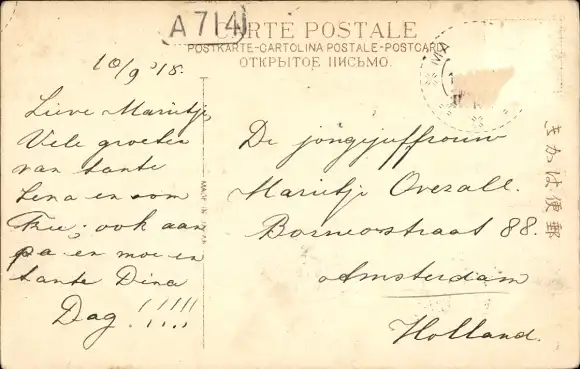 A714
CARTE POSTALE
POSTKARTE-CARTOLINA POSTALE-POSTCARD
ОТКРЫТОЕ ПИСЬМО.
10/9 '18.
Lieve Marietje,
Vele groeten
van tante
Lena en oom
Fré; ook aan
pa en moe en
tante Dina
Dag!!!!!!
De jongejuffrouw
Marietje Overall.
Borneostraat 88.
Amsterdam
Holland.
きかは便郵
MADE IN